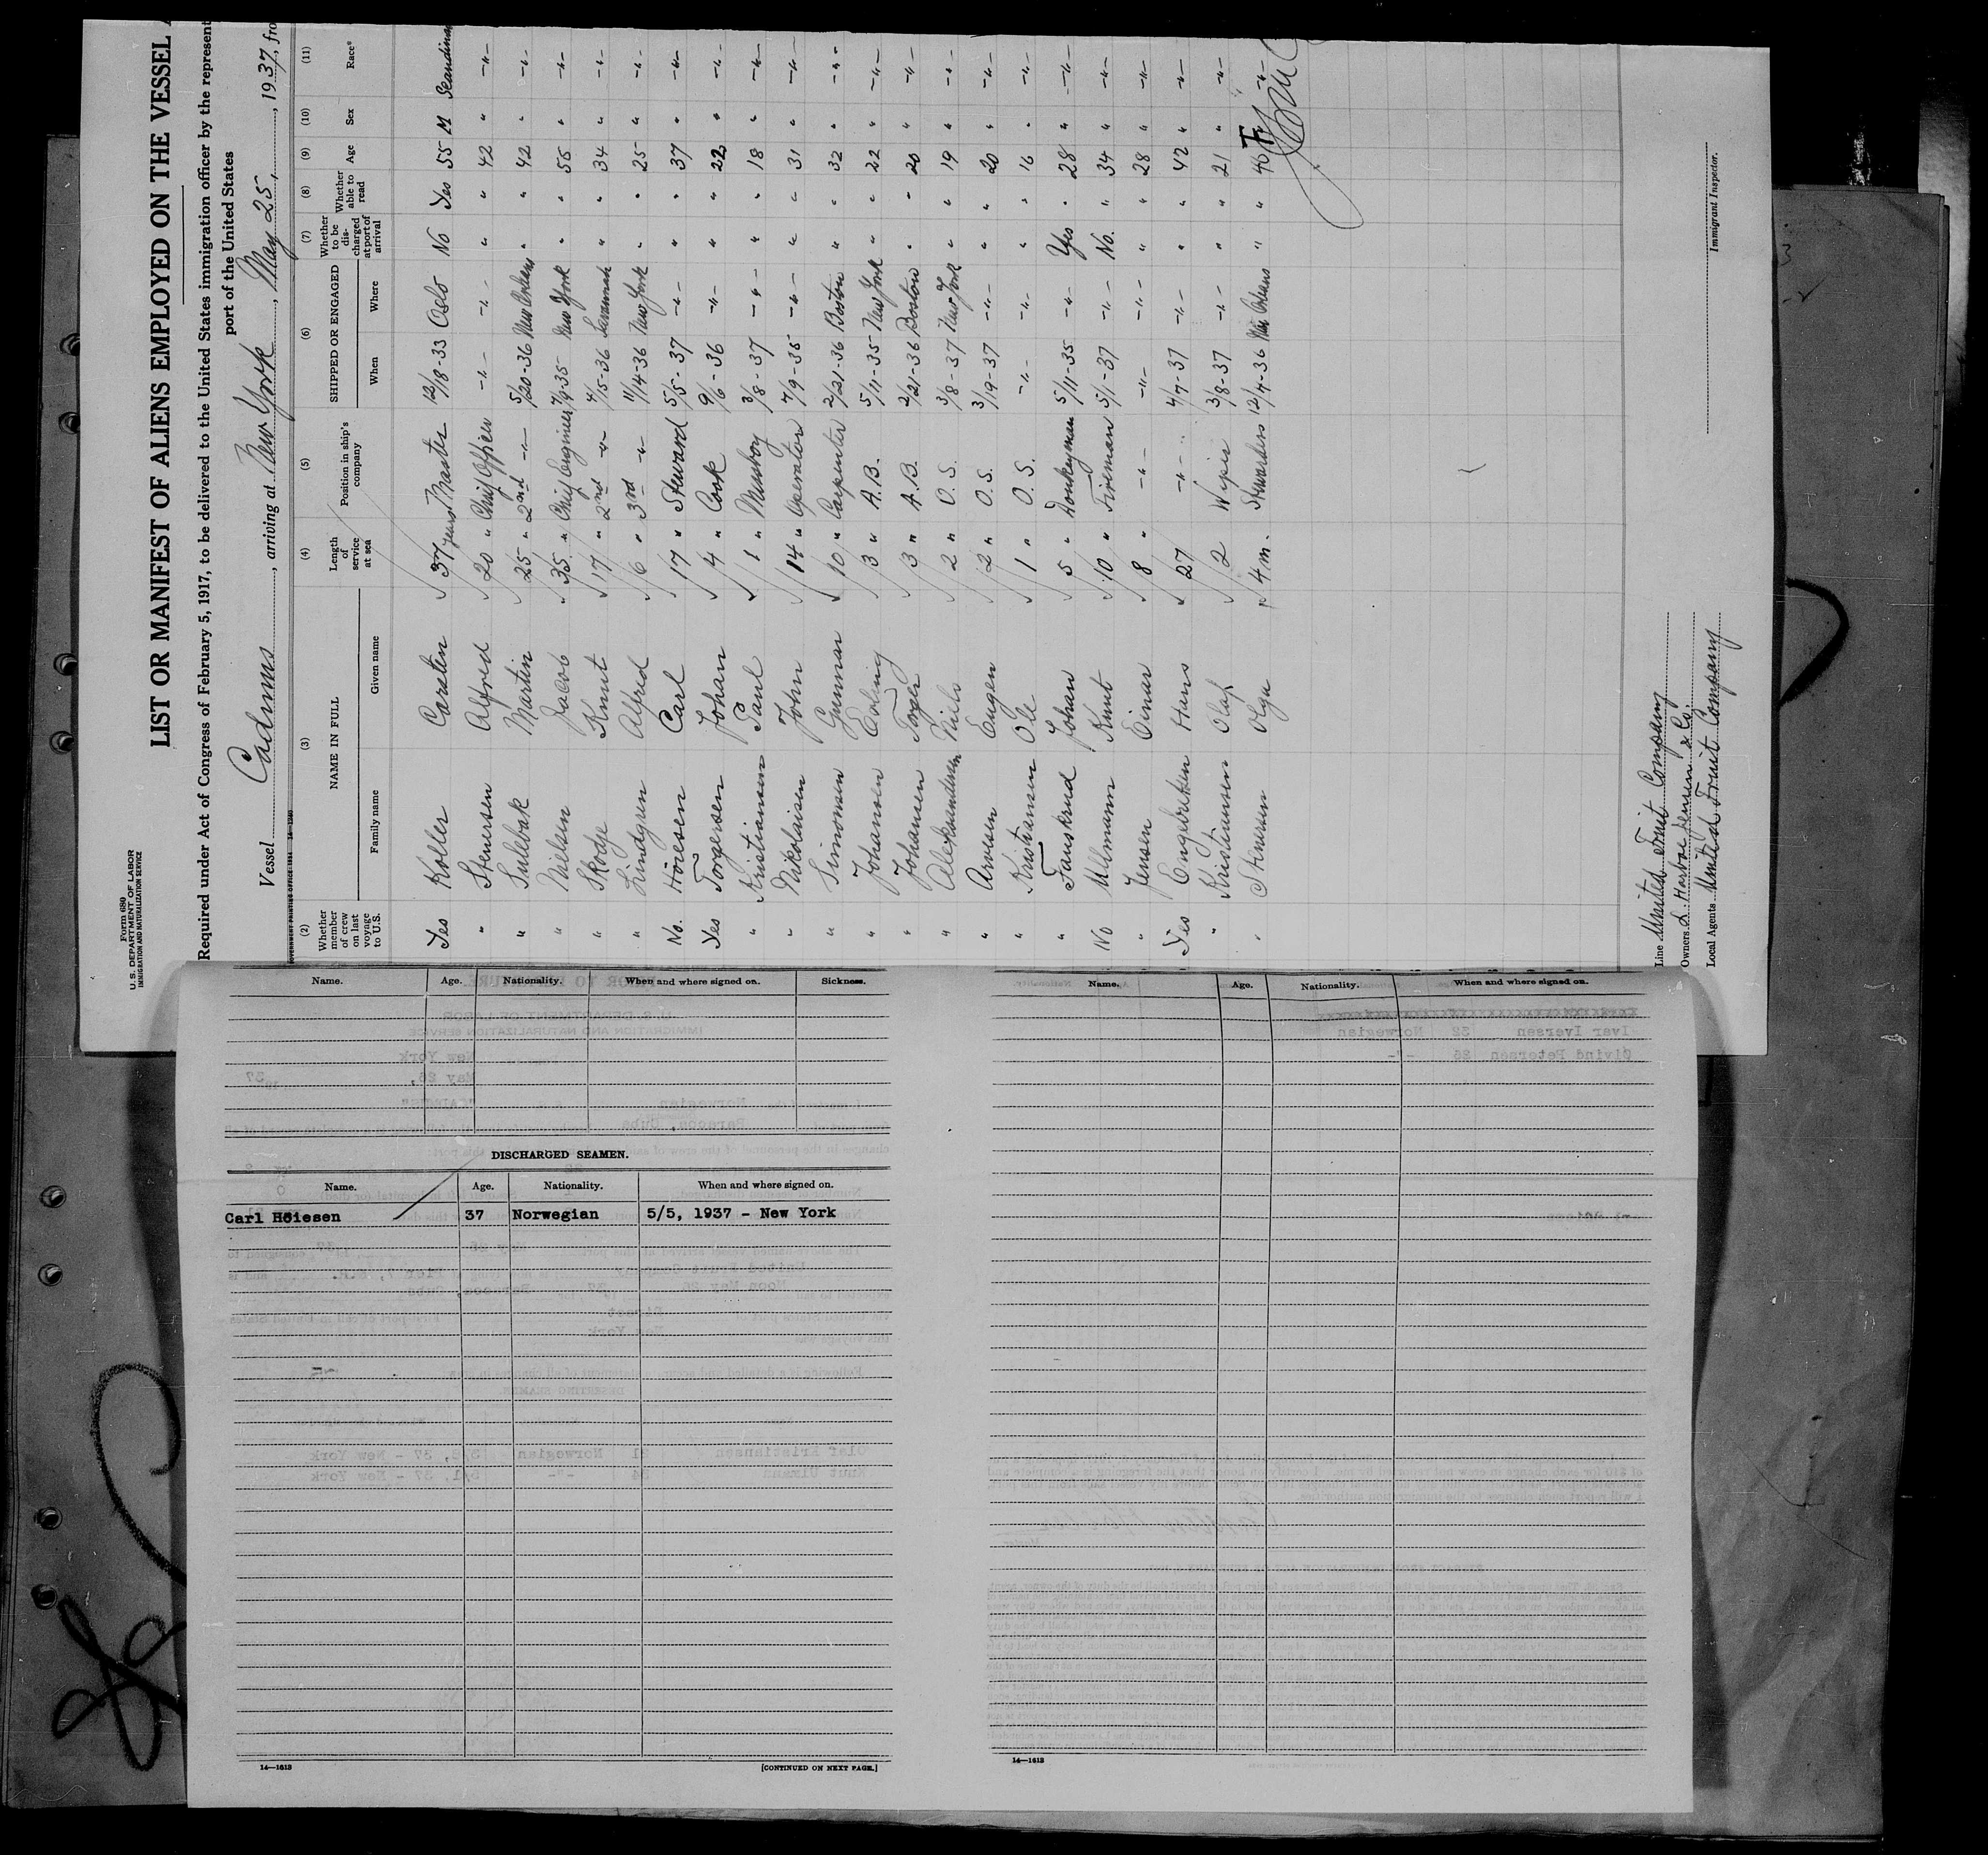 Form 680
U. S. DEPARTMENT OF LABOR
IMMIGRATION AND NATURALIZATION SERVICE
LIST OR MANIFEST OF ALIENS EMPLOYED ON THE VESSEL
Required under Act of Congress of February 5, 1917, to be delivered to the United States immigration officer by the represent
port of the United States
Vessel Cadmus, arriving at New York, May 25, 1937, fro
(2) (3) (4) (5) (6) (7) (8) (9) (10) (11)
Whether member of crew on last voyage to U.S. NAME IN FULL Length of service at sea Position in ship's company SHIPPED OR ENGAGED Whether to be discharged at port of arrival Whether able to read Age Sex Race*
Family name Given name When Where
Yes Koller Carsten 37 years Master 12/18-33 Oslo No Yes 55 M Scandina
" Stenersen Alfred 20 " Chief Officer -"- -"- " " 42 " -"-
" Sulebak Martin 25 " 2nd -"- 5/20-36 New Orleans " " 42 " -"-
" Nielsen Jacob 35 " Chief Engineer 7/9-35 New York " " 55 " -"-
" Skodje Knut 17 " 2nd -"- 4/15-36 Savannah " " 34 " -"-
" Lindgren Alfred 6 " 3rd -"- 11/14-36 New York " " 25 " -"-
No. Höiesen Carl 17 " Steward 5/5-37 -"- " " 37 " -"-
Yes Torgersen Johan 4 " Cook 9/6-36 -"- " " 22 " -"-
" Kristiansen Paul 1 " Messboy 3/8-37 -"- " " 18 " -"-
" Nikolaisen John 14 " Operator 7/9-35 -"- " " 31 " -"-
" Simonsen Gunnar 10 " Carpenter 2/21-36 Boston " " 32 " -"-
" Johansen Erling 3 " A.B. 5/11-35 New York " " 22 " -"-
" Johansen Torger 3 " A.B. 2/21-36 Boston " " 20 " -"-
" Aleksandersen Nils 2 " O.S. 3/8-37 New York " " 19 " -"-
" Arvesen Eugen 2 " O.S. 3/19-37 -"- " " 20 " -"-
" Kristiansen Ole 1 " O.S. -"- -"- " " 16 " -"-
" Fauskrud Johan 5 " Donkeyman 5/11-35 -"- Yes " 28 " -"-
No Ullmann Knut 10 " Fireman 5/1-37 -"- No. " 34 " -"-
" Jensen Einar 8 " -"- -"- -"- " " 28 " -"-
Yes Engebretsen Hans 27 -"- 4/7-37 -"- " " 42 " -"-
" Kristiansen Olaf 2 Wiper 3/8-37 -"- " " 21 " -"-
" Stenersen Olga 4 m. Stewardess 12/4-36 New Orleans " " 40 F -"-
Line United Fruit Company
Owners & Co.
Local Agents United Fruit Company
Immigrant Inspector.
Name. Age. Nationality. When and where signed on. Sickness.
DISCHARGED SEAMEN.
Name. Age. Nationality. When and where signed on.
Carl Höiesen 37 Norwegian 5/5, 1937 - New York
14—1613 [CONTINUED ON NEXT PAGE.]
Name. Age. Nationality. When and where signed on.
14—1613